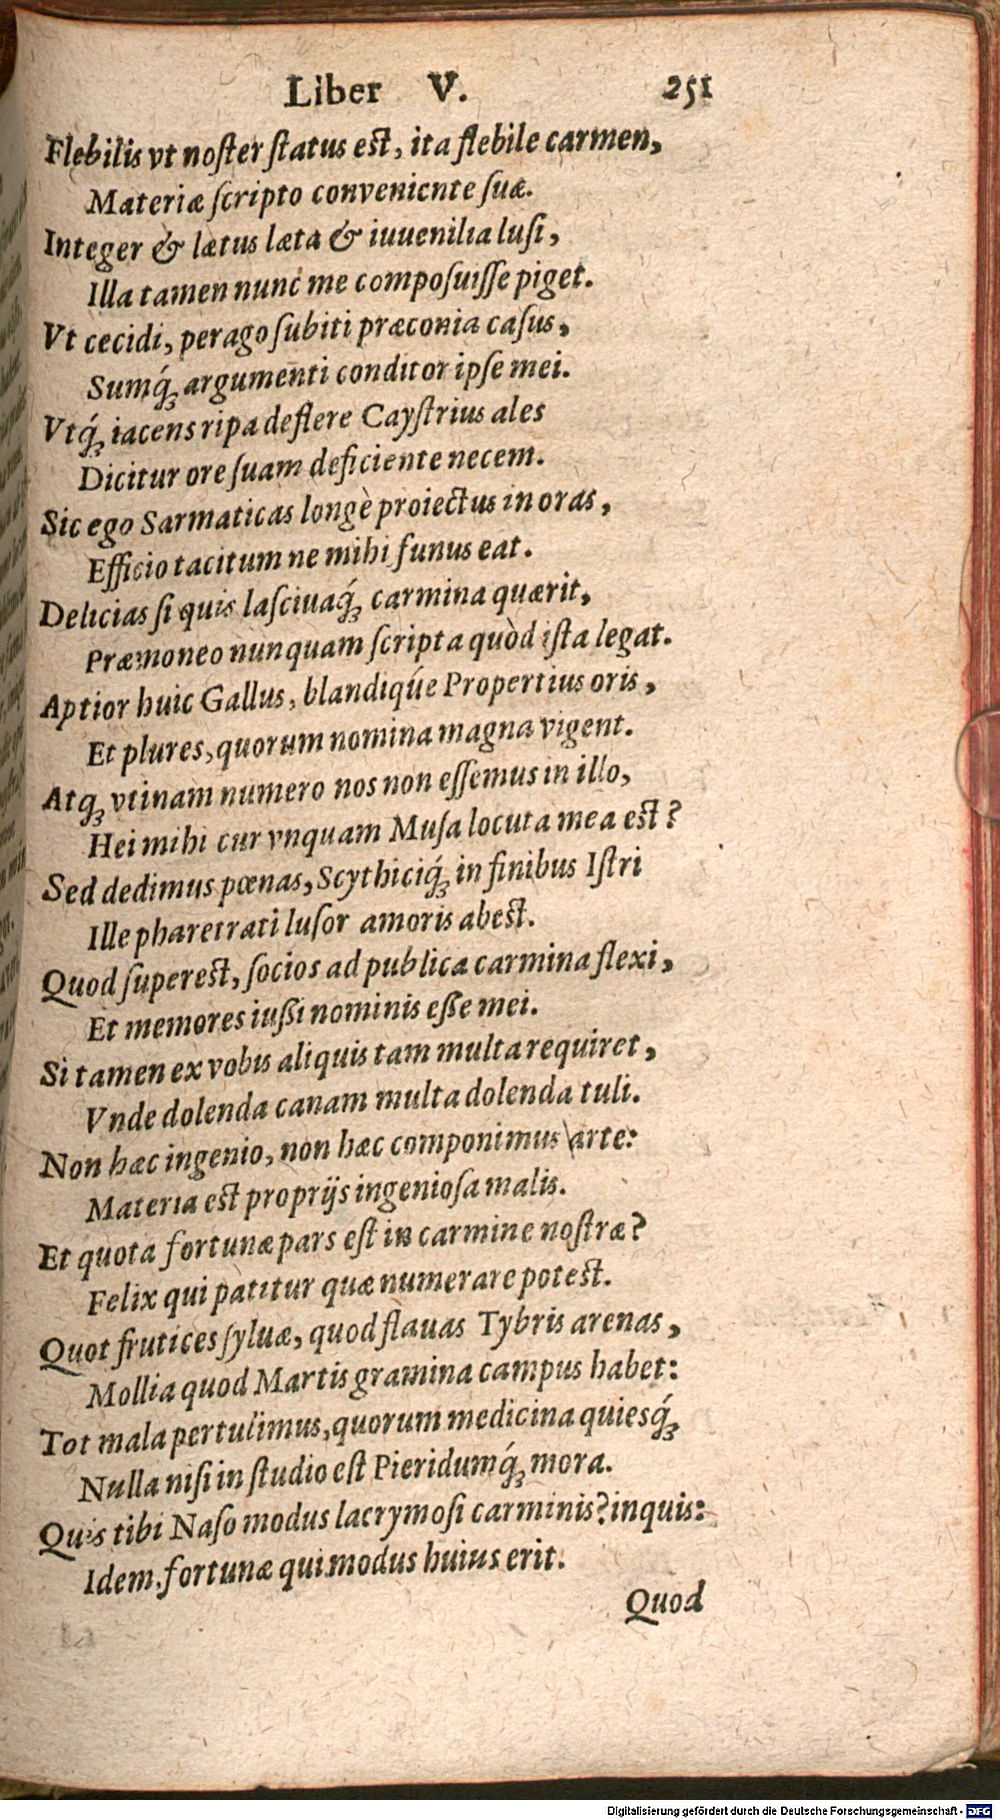 Liber V. 251
Flebilis vt noſter ſtatus eſt, ita flebile carmen,
Materiæ ſcripto conveniente ſuæ.
Integer & lætus læta & iuuenilia luſi,
Illa tamen nunc me compoſuiſſe piget.
Vt cecidi, perago ſubiti præconia caſus,
Sumq́ꝫ argumenti conditor ipſe mei.
Vtq́ꝫ iacens ripa deflere Cayſtrius ales
Dicitur ore ſuam deficiente necem.
Sic ego Sarmaticas longè proiectus in oras,
Efficio tacitum ne mihi funus eat.
Delicias ſi quis laſciuaq́ꝫ carmina quærit,
Præmoneo nunquam ſcripta quòd iſta legat.
Aptior huic Gallus, blandiq́ue Propertius oris,
Et plures, quorum nomina magna vigent.
Atqꝫ vtinam numero nos non eſſemus in illo,
Hei mihi cur vnquam Muſa locuta mea eſt?
Sed dedimus pœnas, Scythiciq́ꝫ in finibus Iſtri
Ille pharetrati luſor amoris abeſt.
Quod ſupereſt, ſocios ad publica carmina flexi,
Et memores iuſſi nominis eſſe mei.
Si tamen ex vobis aliquis tam multa requiret,
Vnde dolenda canam multa dolenda tuli.
Non hæc ingenio, non hæc componimus arte:
Materia eſt proprijs ingenioſa malis.
Et quota fortunæ pars eſt in carmine noſtræ?
Felix qui patitur quæ numerare poteſt.
Quot frutices ſyluæ, quod flauas Tybris arenas,
Mollia quod Martis gramina campus habet:
Tot mala pertulimus, quorum medicina quiesq́ꝫ
Nulla niſi in ſtudio eſt Pieridumq́ꝫ mora.
Quis tibi Naſo modus lacrymoſi carminis? inquis:
Idem, fortunæ qui modus huius erit.
Quod
Digitalisierung gefördert durch die Deutsche Forschungsgemeinschaft - DFG